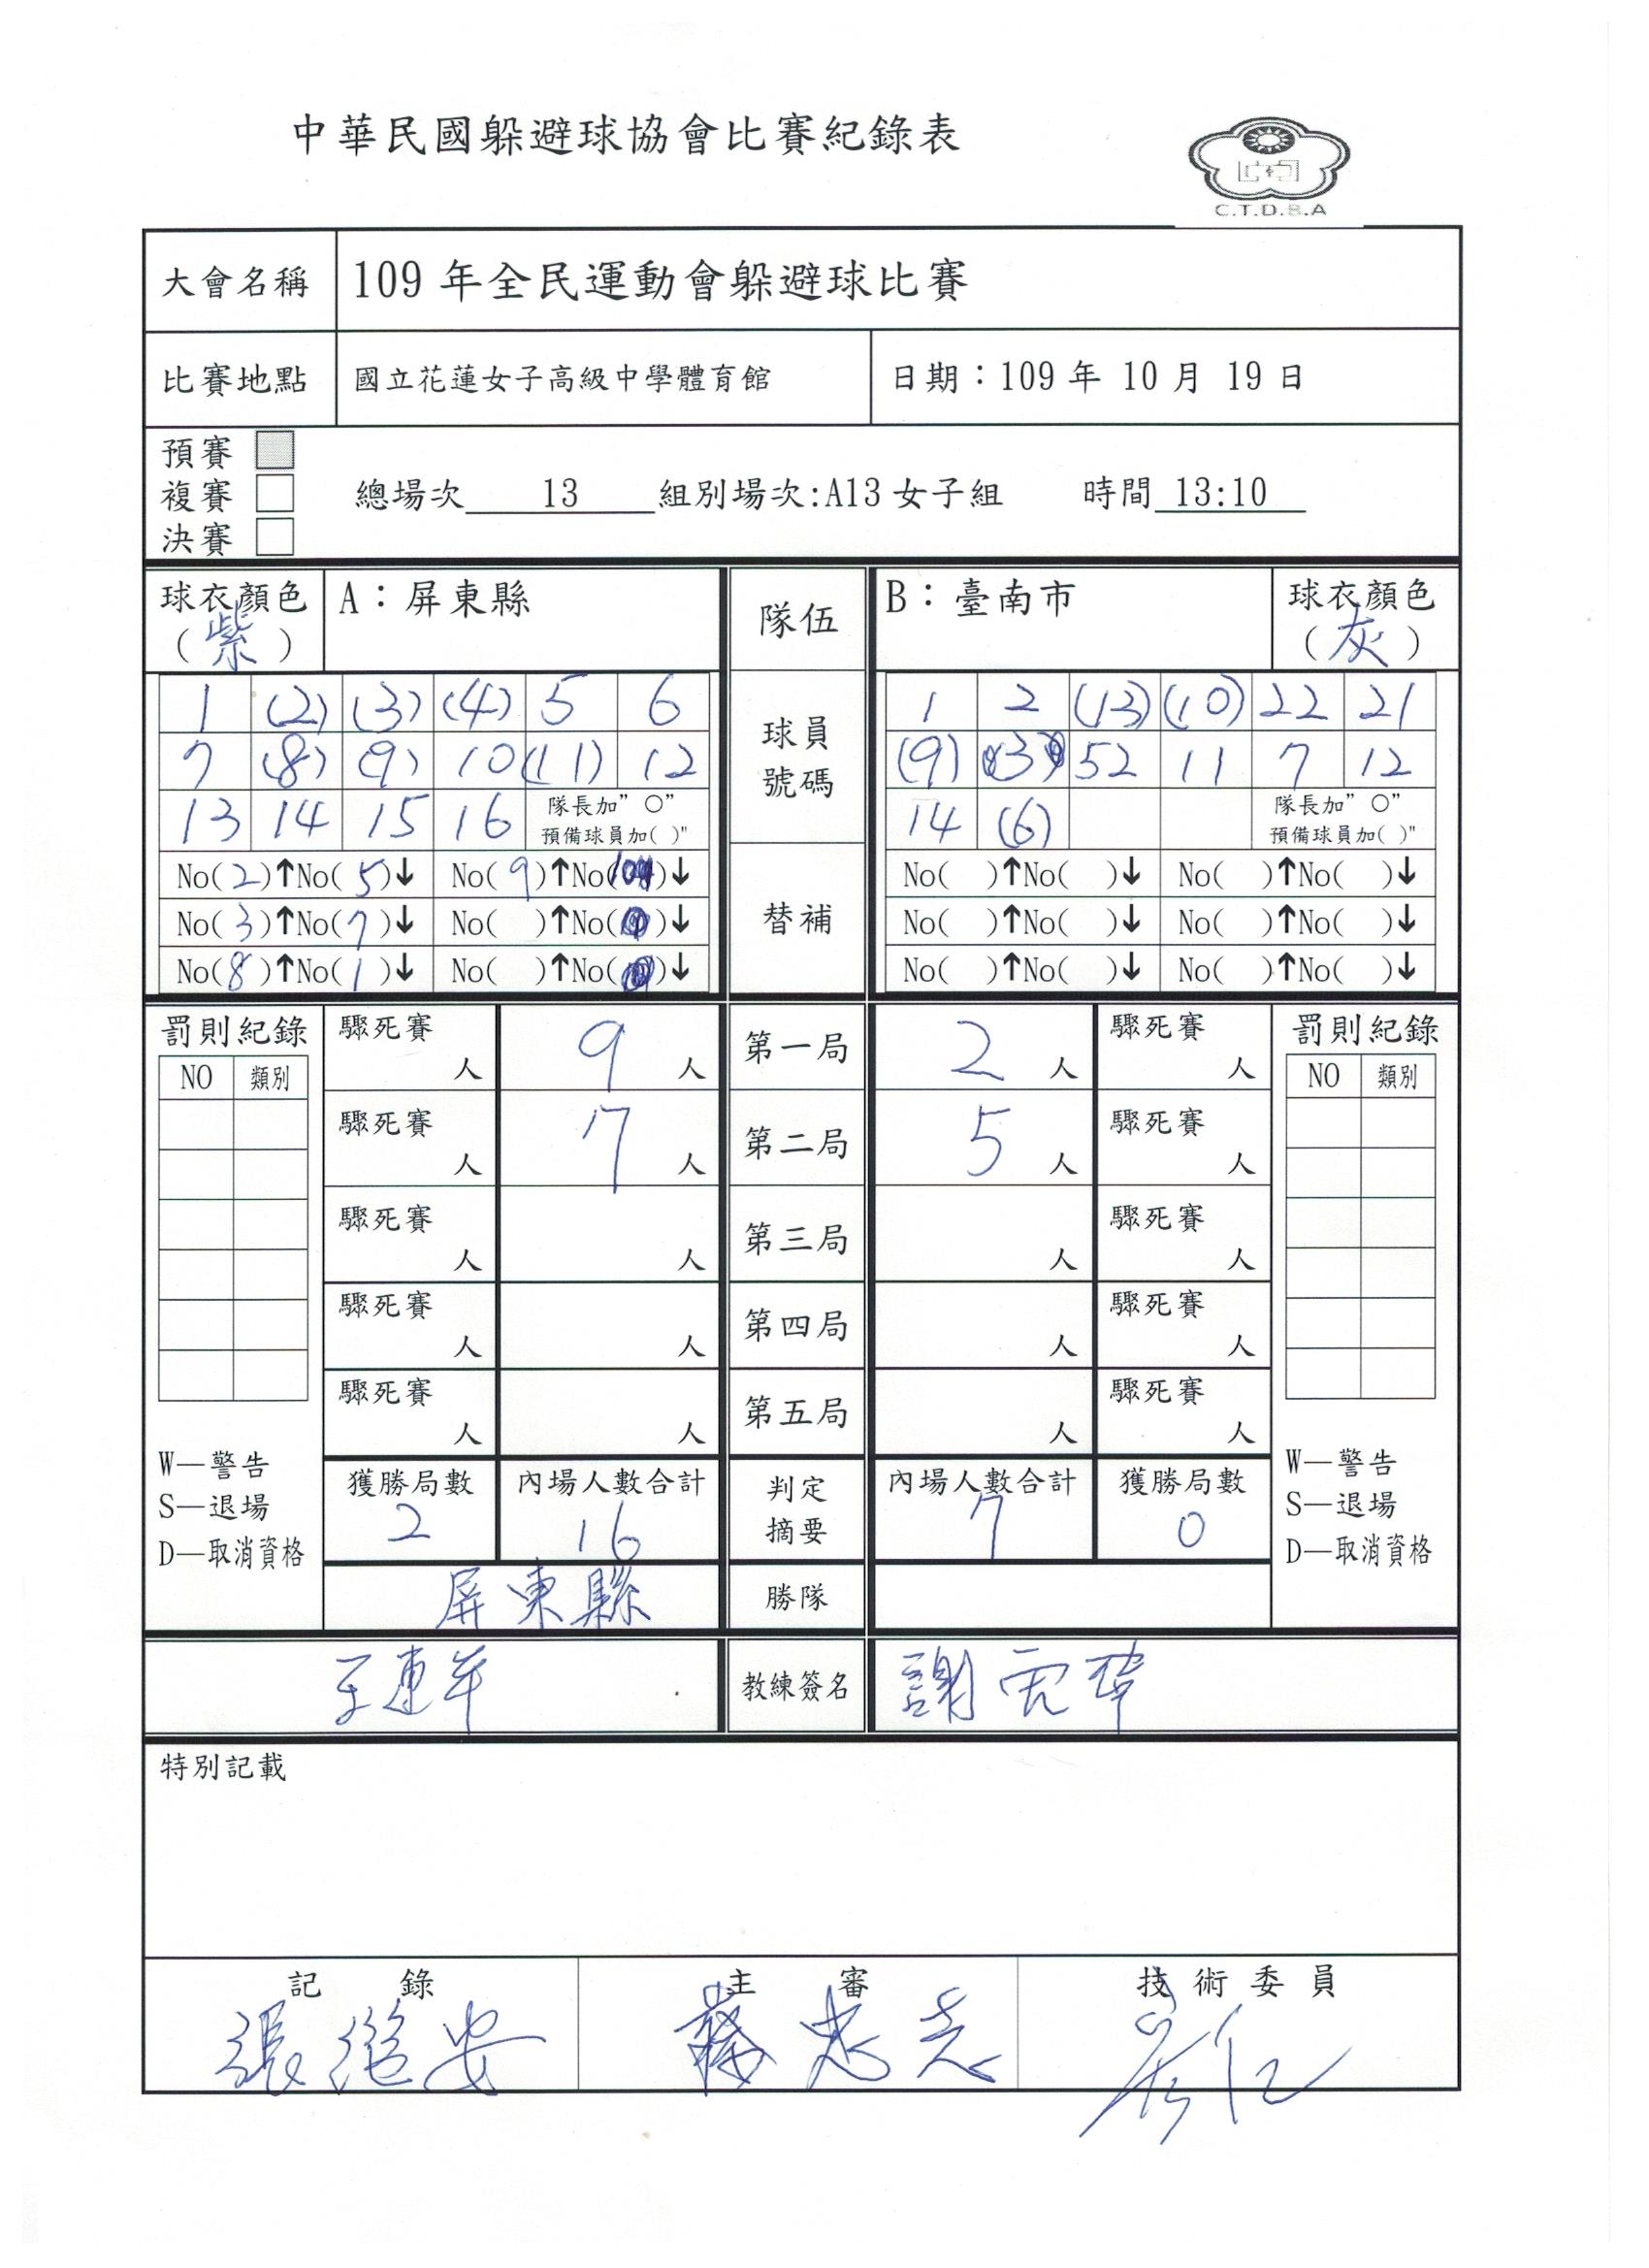 中華民國躲避球協會比賽紀錄表
C.T.D.B.A
大會名稱 109 年全民運動會躲避球比賽
比賽地點 國立花蓮女子高級中學體育館 日期：109 年 10 月 19 日
預賽
複賽 總場次 13 組別場次:A13 女子組 時間 13:10
決賽
球衣顏色 A：屏東縣 隊伍 B：臺南市 球衣顏色
（紫） （灰）
1 (2) (3) (4) 5 6 球員 1 2 (13) (10) 22 21
7 (8) (9) 10 (11) 12 號碼 (9) 3 52 11 7 12
13 14 15 16 隊長加”○” 14 (6) 隊長加”○”
預備球員加( )" 預備球員加( )"
No(2)↑No(5)↓ No(9)↑No( )↓ No( )↑No( )↓ No( )↑No( )↓
No(3)↑No(7)↓ No( )↑No( )↓ 替補 No( )↑No( )↓ No( )↑No( )↓
No(8)↑No(1)↓ No( )↑No( )↓ No( )↑No( )↓ No( )↑No( )↓
罰則紀錄 驟死賽 人 9 人 第一局 2 人 驟死賽 人 罰則紀錄
NO 類別 NO 類別
驟死賽 人 7 人 第二局 5 人 驟死賽 人
驟死賽 人 人 第三局 人 驟死賽 人
驟死賽 人 人 第四局 人 驟死賽 人
驟死賽 人 人 第五局 人 驟死賽 人
W—警告 W—警告
獲勝局數 內場人數合計 判定 內場人數合計 獲勝局數
S—退場 S—退場
2 16 摘要 7 0
D—取消資格 D—取消資格
屏東縣 勝隊
教練簽名 謝
特別記載
記錄 主審 技術委員
張繼安 忠志